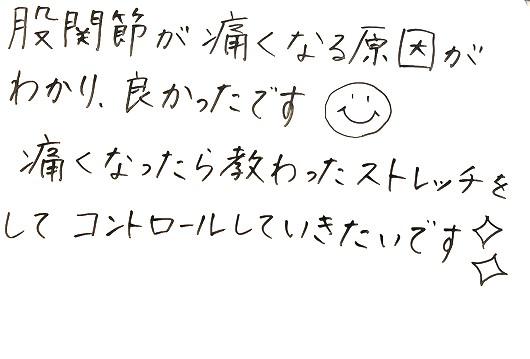 股関節が痛くなる原因が
わかり、良かったです
痛くなったら教わったストレッチを
して コントロールしていきたいです